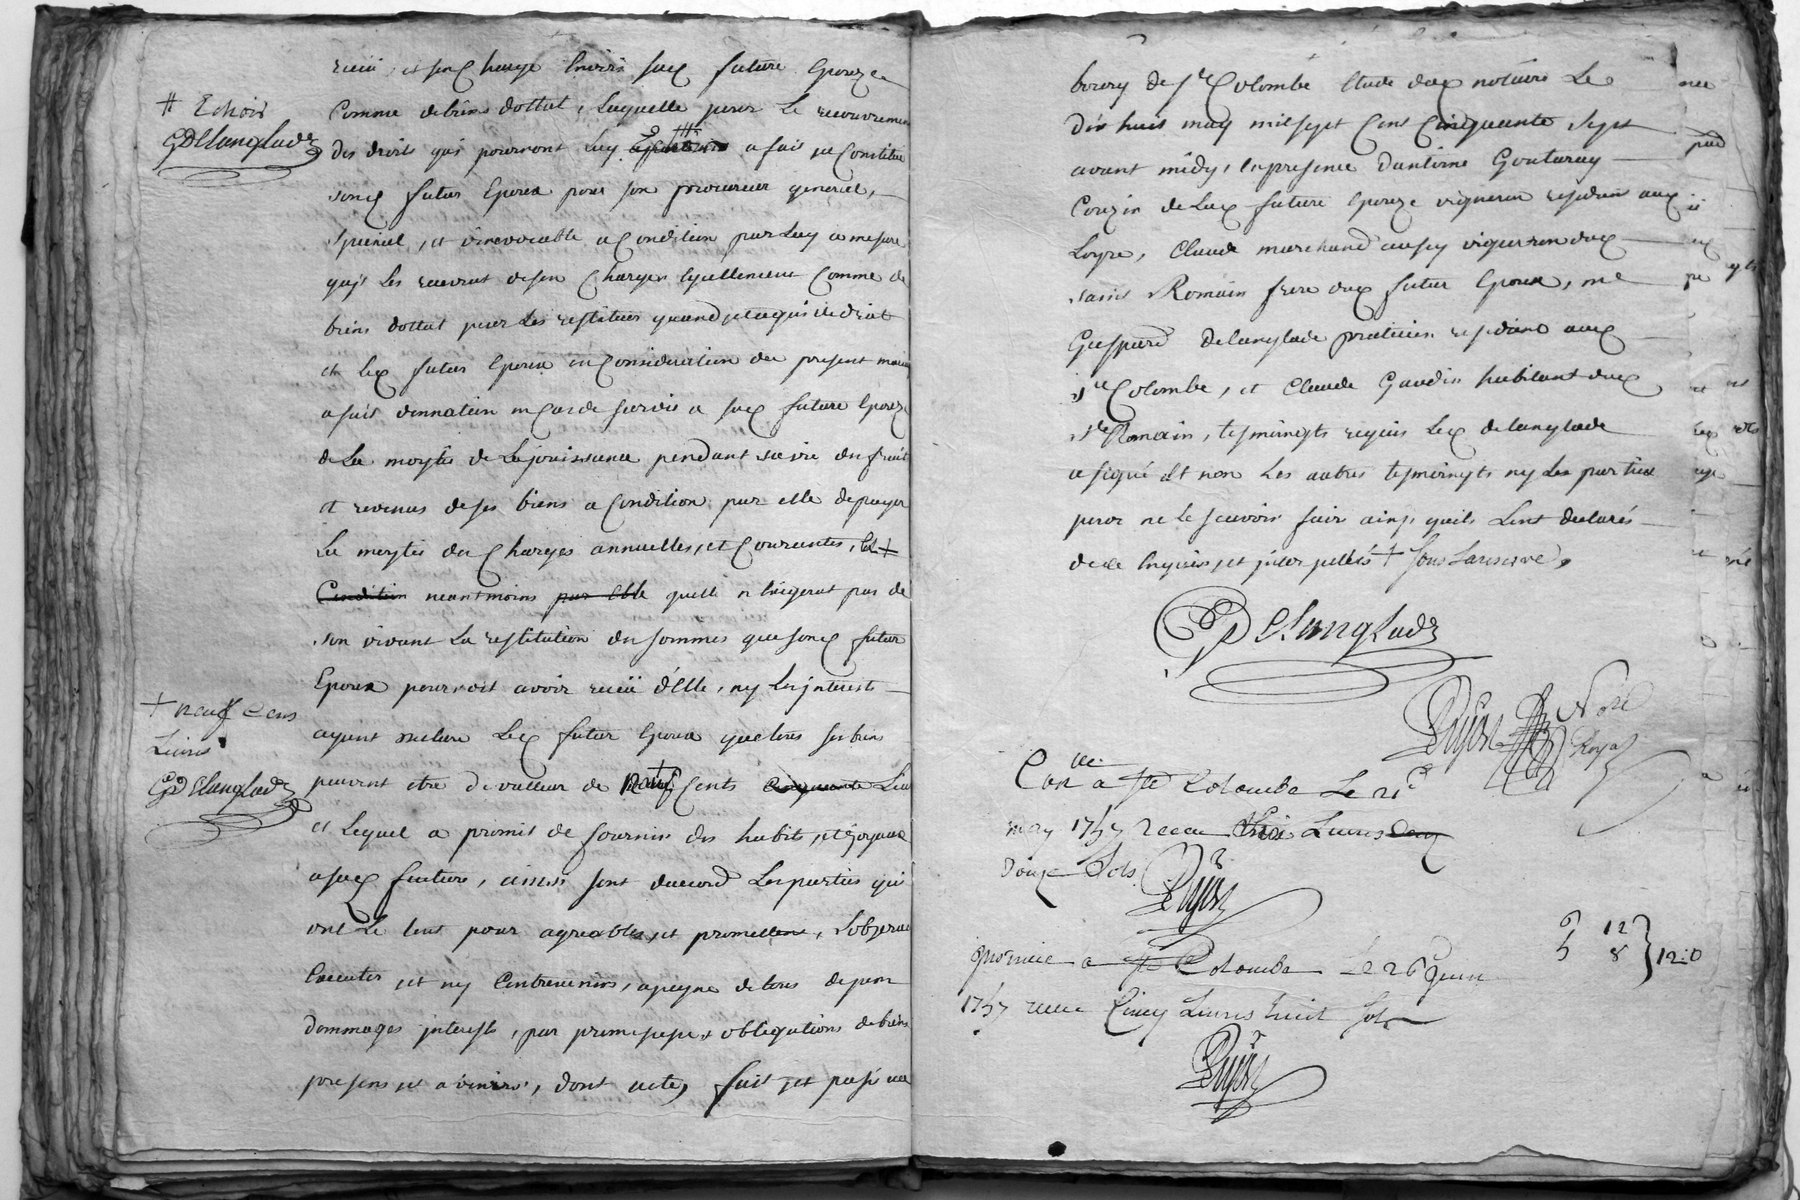 # Echoir
GDelanglade
receu, et sen Charge Envers sad future Epouze
Comme de biens dottal, Laquelle pour Le recouvremen
des droits qui pourront Luy a fait et Constitue
sond futur Epoux pour son procureur general,
special, et irrevocable a Condition par Luy a mesure
quil Les recevra de sen Charger Egallement Comme de
biens dottal pour Les restituer quand et a qui de droit
et led futur Epoux en Consideration du present mariag
a fait donnation en Cas de survie a sad future Epouze
de La moytie de La jouissance pendant sa vie du fruit
et revenus de ses biens a Condition par elle de payer
La moytie des Charges annuelles, et Courantes, +
Condition neantmoins par Elle quelle n'Exigerat pas de
son vivant La restitution des sommes que sond futur
Epoux pourroit avoir receü d'Elle, ny Les jnterests
+ neuf Cens
Livres
GDelanglade
ayant declaré Led futur Epoux que tous ses biens
peuvent etre de valleur de neuf Cents Cinquante Liv
et Lequel a promis de fournir des habits, et joyaux
a sad future, ainsi sont daccord Les parties qui
ont Le tout pour agreable, et promettent, L'observer
Executer, et ny Contrevenir, a peyne de tous depens
dommages jnterests, par promesses, obligations de biens
presens, et a venirs, dont acte, fait, et passé au
bourg de Ste Colombe Etude dud notaire Le
dix huit may mil sept Cent Cinquante sept
avant midy, En presence d'antoine Goutaray
Couzin de Lad future Epouze vigneron residant aux
Loyre, Claude marchand aussy vigneron dud
saint Romain frere dud futur Epoux, me
Gaspard Delanglade praticien residant aud
Ste Colombe, et Claude Gaudin habitant dud
St Romain, tesmoingts requis Led delanglade
a signé Et non Les autres tesmoingts ny Les parties
pour ne Le scavoir faire ainsi quils Lont declarés
de ce Enquis, et jnterpellés + sous Lareserve,
GDelanglade
Pujon Nore
Royal
Con a Ste Colombe Le 21e
may 1757 Receu trois Livres
Douze Sols
Pujon
jnsinué a Ste Colombe Le 26 Juin
1757 receu Cinq Livres huit sols
Pujon
6 12
5 8 } 12:0